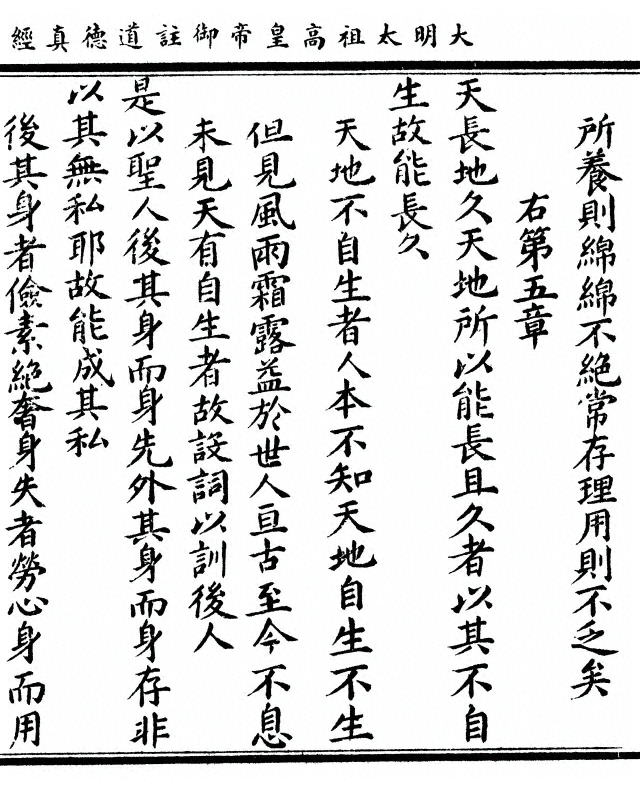 大明太祖高皇帝御註道德真經
所養則綿綿不絶常存理用則不乏矣
右第五章
天長地久天地所以能長且久者以其不自
生故能長久
天地不自生者人本不知天地自生不生
但見風雨霜露益於世人亘古至今不息
未見天有自生者故設詞以訓後人
是以聖人後其身而身先外其身而身存非
以其無私耶故能成其私
後其身者儉素絶奢身失者勞心身而用